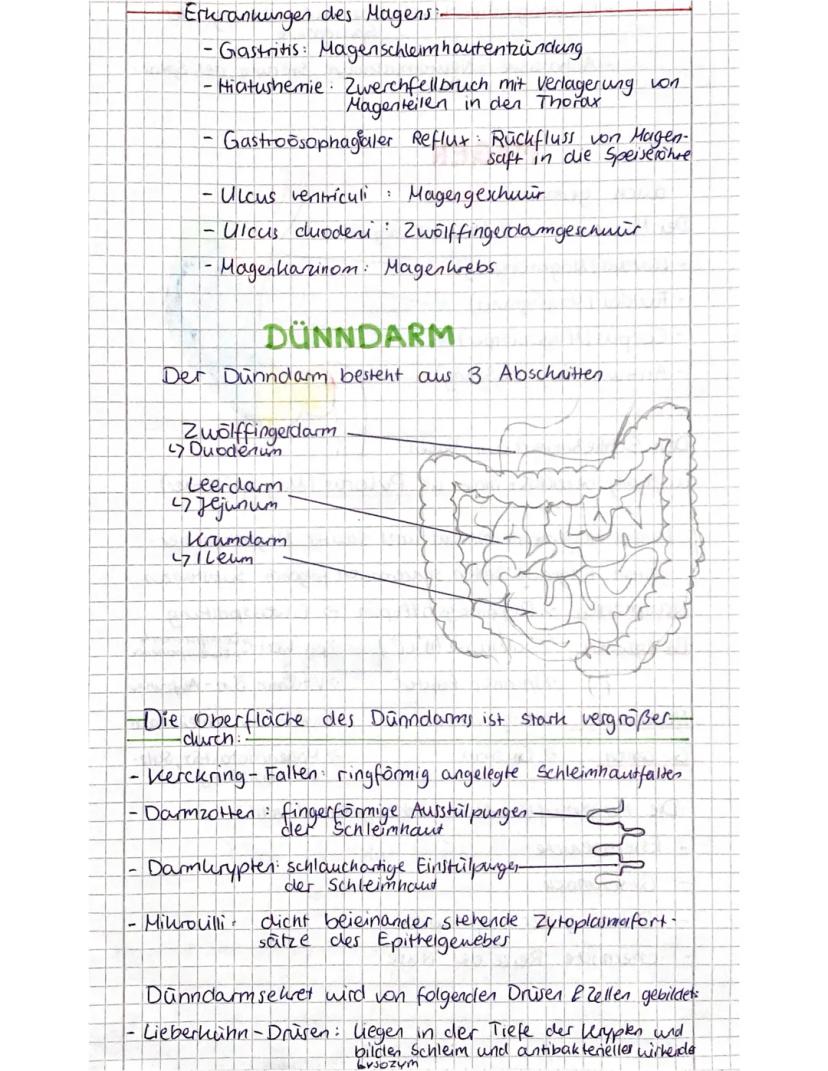 Erkrankungen des Magens:
- Gastritis: Magenschleimhautentzündung
- Hiatushernie: Zwerchfellbruch mit Verlagerung von
Magenteilen in den Thorax
- Gastroösophagealer Reflux: Rückfluss von Magen-
saft in die Speiseröhre
- Ulcus ventriculi: Magengeschwür
- Ulcus duodeni: Zwölffingerdarmgeschwür
- Magenkarzinom: Magenkrebs
DÜNNDARM
Der Dünndarm besteht aus 3 Abschnitten
Zwölffingerdarm
↳ Duodenum
Leerdarm
↳ Jejunum
Krumdarm
↳ Ileum
Die Oberfläche des Dünndarms ist stark vergrößer
durch:
- Kerckring-Falten: ringförmig angelegte Schleimhautfalten
- Darmzotten: fingerförmige Ausstülpungen
der Schleimhaut
- Darmkrypten: schlauchartige Einstülpungen
der Schleimhaut
- Mikrovilli: dicht beieinander stehende Zytoplasmafort-
sätze des Epithelgewebes
Dünndarmsekret wird von folgenden Drüsen & Zellen gebildet:
- Lieberkühn-Drüsen: liegen in der Tiefe der Krypten und
bilden Schleim und antibakterielles wirkende
Lysozym